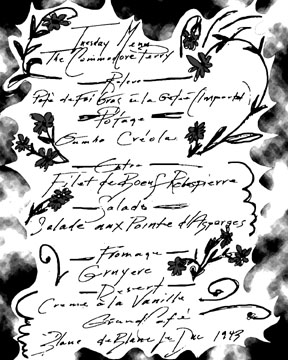 Tuesday Menu
The Commodore Perry
Releve
Paté de Foi Gras à la Gefun (Importé)
Pôtage
Gumbo Créole
Entre
Filet de Boeuf Robespierre
Salade
Salade aux Pointe d'Asparges
Fromage
Gruyere
Desert
Creme a la Vanille
Grand Café
Blanc de Blanc Le Duc 1943